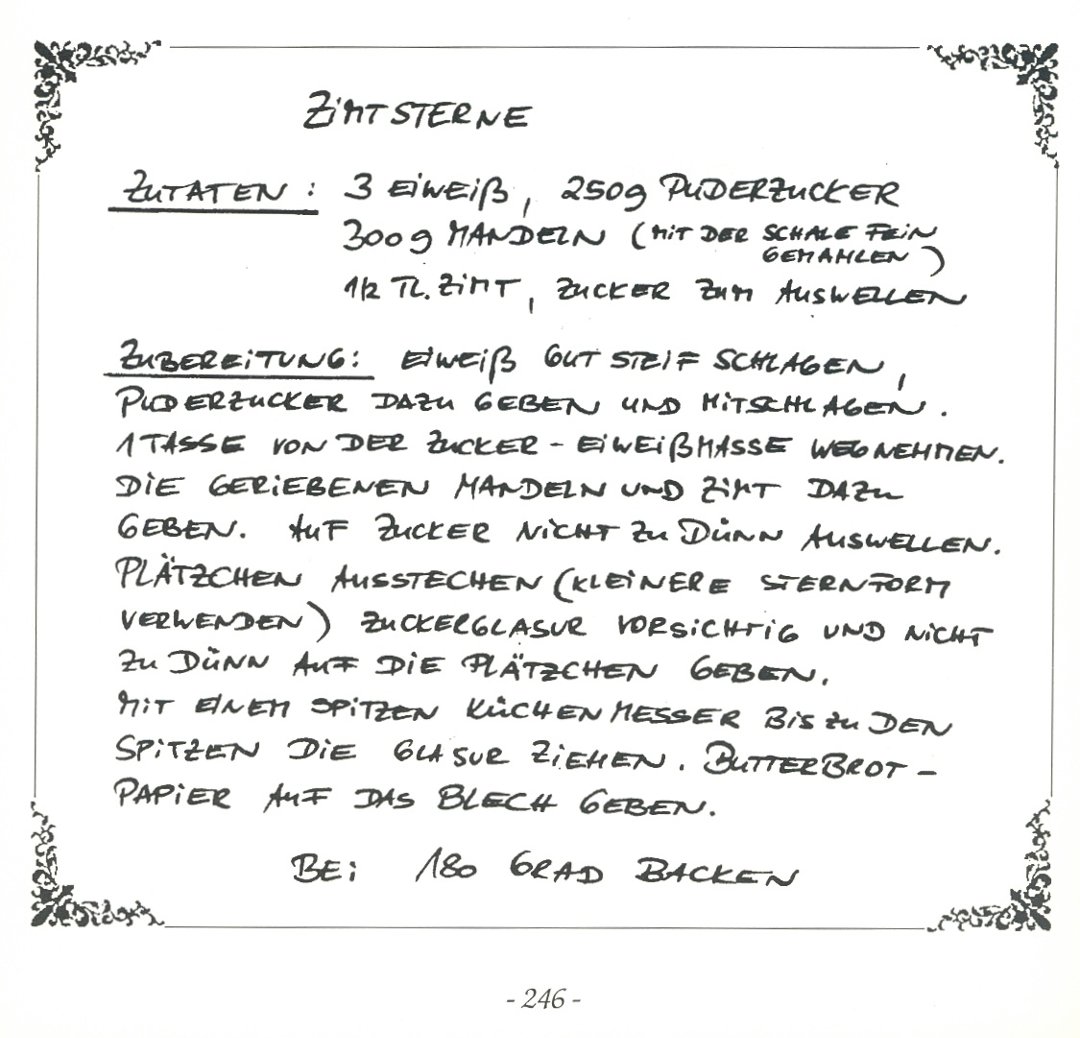 ZIMTSTERNE
ZUTATEN: 3 EIWEIß, 250g PUDERZUCKER
300g MANDELN (MIT DER SCHALE FEIN
GEMAHLEN)
1/2 TL. ZIMT, ZUCKER ZUM AUSWELLEN
ZUBEREITUNG: EIWEIß GUT STEIF SCHLAGEN,
PUDERZUCKER DAZU GEBEN UND MITSCHLAGEN.
1 TASSE VON DER ZUCKER-EIWEIßMASSE WEGNEHMEN.
DIE GERIEBENEN MANDELN UND ZIMT DAZU
GEBEN. AUF ZUCKER NICHT ZU DÜNN AUSWELLEN.
PLÄTZCHEN AUSSTECHEN (KLEINERE STERNFORM
VERWENDEN) ZUCKERGLASUR VORSICHTIG UND NICHT
ZU DÜNN AUF DIE PLÄTZCHEN GEBEN.
MIT EINEM SPITZEN KÜCHENMESSER BIS ZU DEN
SPITZEN DIE GLASUR ZIEHEN. BUTTERBROT-
PAPIER AUF DAS BLECH GEBEN.
BEI 180 GRAD BACKEN
- 246 -